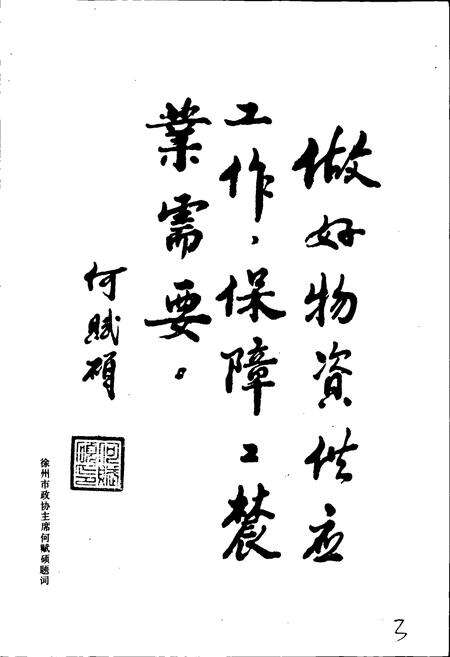 做好物资供应
工作，保障工农
業需要。
何赋碩
徐州市政协主席何赋硕题词
3